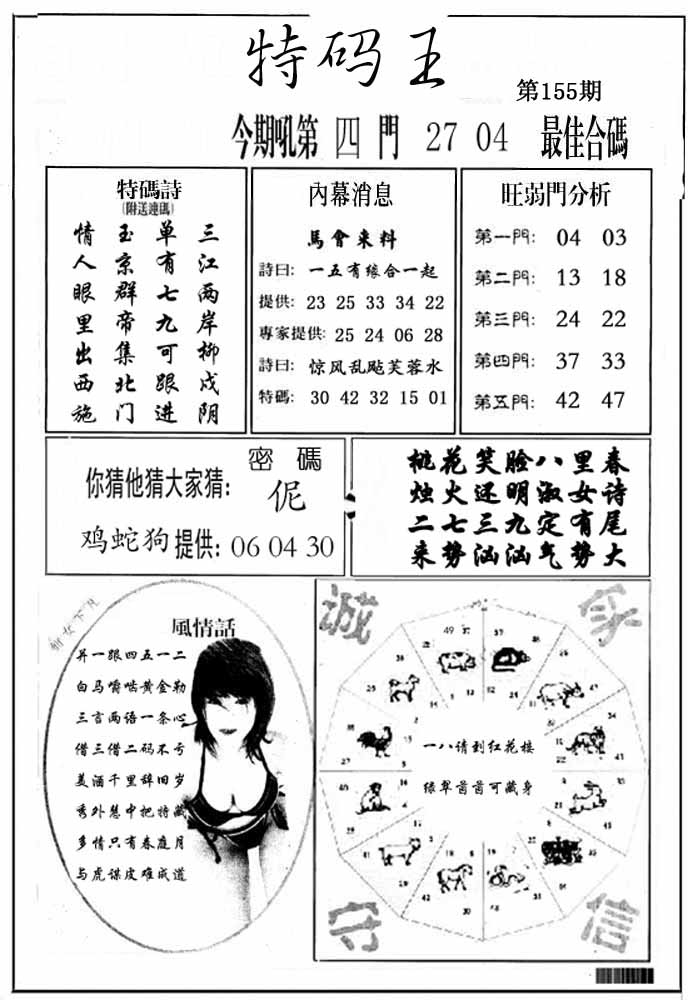 特码王
第155期
今期吼第 四 門 27 04 最佳合碼
特碼詩
(附送連碼)
情 玉 单 三
人 京 有 江
眼 群 七 两
里 帝 九 岸
出 集 可 柳
西 北 跟 戍
施 门 进 阴
內幕消息
馬會来料
詩曰: 一五有缘合一起
提供: 23 25 33 34 22
專家提供: 25 24 06 28
詩曰: 惊风乱飐芙蓉水
特碼: 30 42 32 15 01
旺弱門分析
第一門: 04 03
第二門: 13 18
第三門: 24 22
第四門: 37 33
第五門: 42 47
密碼
你猜他猜大家猜: 伲
鸡蛇狗提供: 06 04 30
桃花笑脸八里春
烛火还明淑女诗
二七三九定有尾
来势汹汹气势大
仙女下凡
風情話
并一跟四五一二
白马嚼啮黄金勒
三言两语一条心
借三借二码不亏
美酒千里辞旧岁
秀外慧中把特藏
多情只有春庭月
与虎谋皮难成道
诚
守
信
一八请到红花楼
绿翠茵茵可藏身